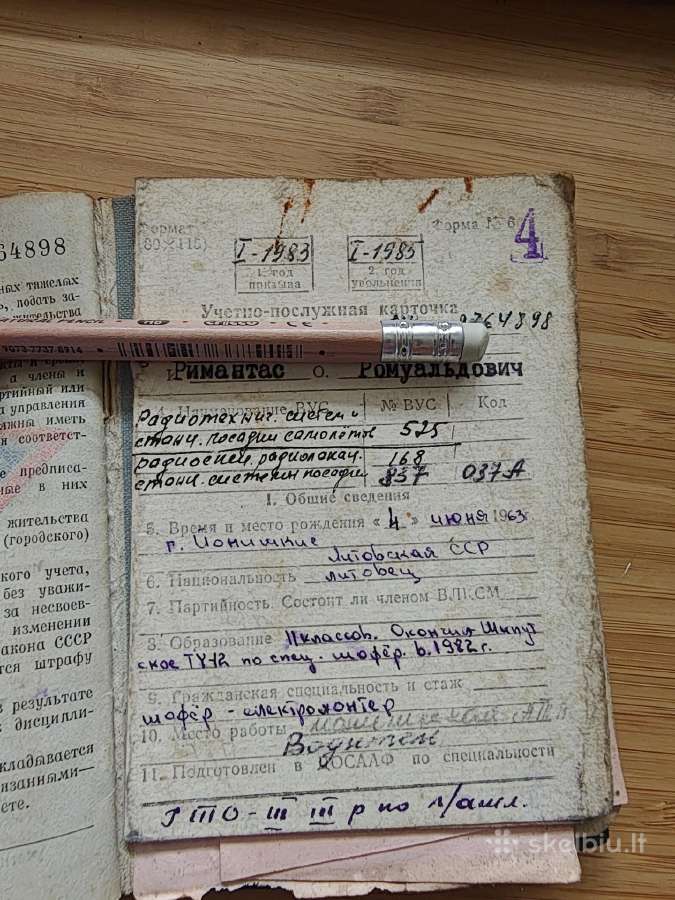 64898
ных тяжелых
ь, подать за-
жительства
а члены и
ртийный или
а управления
лжны иметь
я соответст-
е предписа-
ные в них
жительства
(городского)
кого учета,
без уважи-
за несвоев-
изменении
акона СССР
тся штрафу
в результате
дисципли-
кладывается
изанными—
сте.
Формат
Форма № 6
4
I-1983
I-1985
1. год
призыва
2. год
увольнения
Учетно-послужная карточка
0764898
9073-7737-8914
Римантас О. Ромуальдович
Наименование ВУС № ВУС Код
Радиотехнич. систем и
станц. посадки самолётов 525
радиоспец. радиолокац. 168
станц. системы посадки 837 037А
I. Общие сведения
5. Время и место рождения «4» июня 1963
г. Ионишкис
Литовская ССР
6. Национальность литовец
7. Партийность. Состоит ли членом ВЛКСМ
8. Образование 11 классов. Окончил
ское ТУ-12 по спец. шофёр. в 1982 г.
9. Гражданская специальность и стаж
шофёр - електромонтер
10. Место работы
Водитель
11. Подготовлен в ДОСААФ по специальности
РТО-III III р по л/атл.
skelbiu.lt